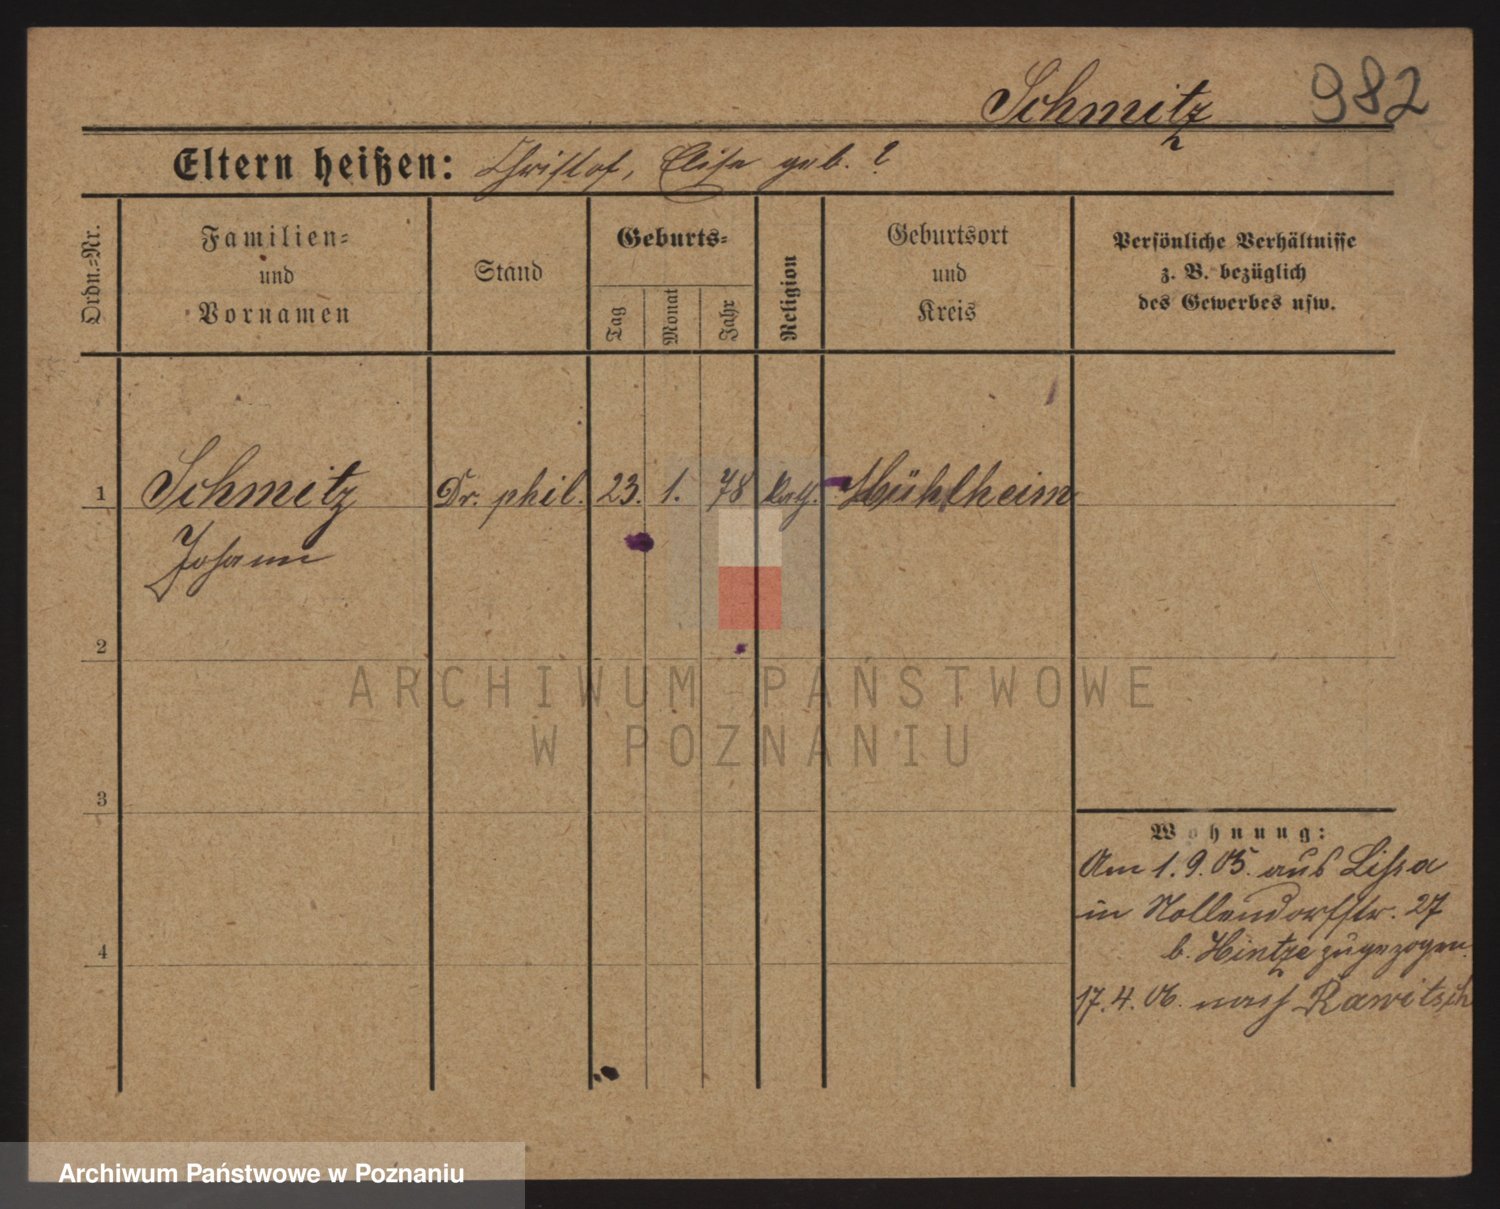 Schmitz 982
Eltern heißen: Christof, Elise geb. ?
Ordn.=Nr.
Familien=
und
Vornamen
Stand
Geburts=
Tag
Monat
Jahr
Religion
Geburtsort
und
Kreis
Persönliche Verhältnisse
z. B. bezüglich
des Gewerbes usw.
1 Schmitz Dr. phil. 23. 1. 78 kath. Mühlheim
Johann
2
ARCHIWUM PAŃSTWOWE
W POZNANIU
3
Wohnung:
Am 1.9.05. aus Lissa
in Nollendorfstr. 27
b. Hintze zugezogen.
4
17.4.06. nach Rawitsch
Archiwum Państwowe w Poznaniu